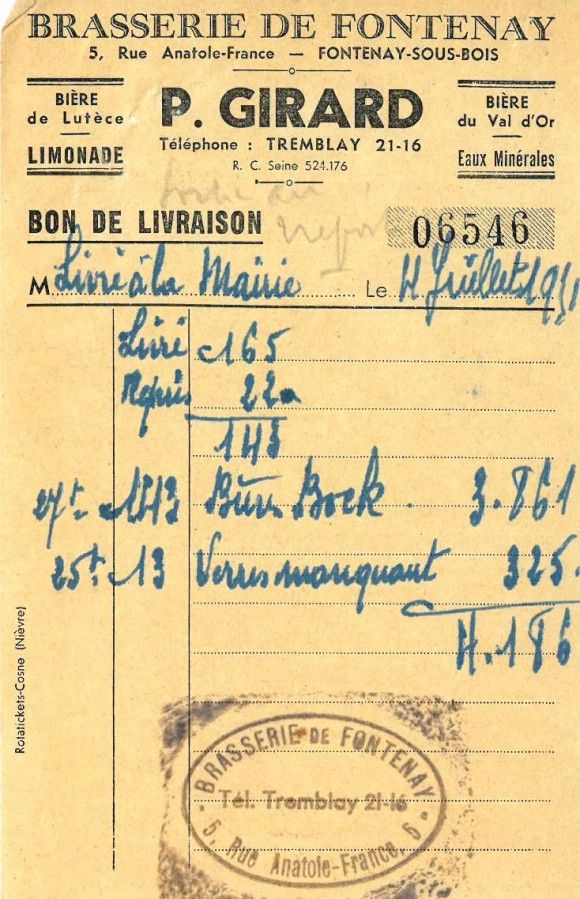 BRASSERIE DE FONTENAY
5, Rue Anatole-France — FONTENAY-SOUS-BOIS
BIÈRE
de Lutèce
LIMONADE
P. GIRARD
Téléphone : TREMBLAY 21-16
R. C. Seine 524.176
BIÈRE
du Val d'Or
Eaux Minérales
BON DE LIVRAISON 06546
M Livré à la Mairie Le 4 Juillet 1951
Livré 165
Repris 22
143
27f 143 Bières Bock 3.861
25f 13 Verres manquant 325
4.186
Rotatickets-Cosne (Nièvre)
BRASSERIE DE FONTENAY
Tél. Tremblay 21-16
5, Rue Anatole-France, 5